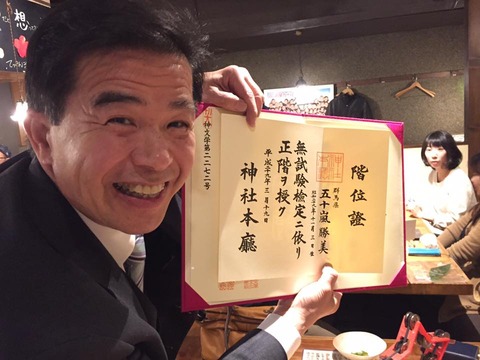 階位證
群馬縣
五十嵐 勝美
無試驗檢定ニ依リ
正階ヲ授ク
平成廿九年三月十九日
神社本廳
神文学第二二七二号
想